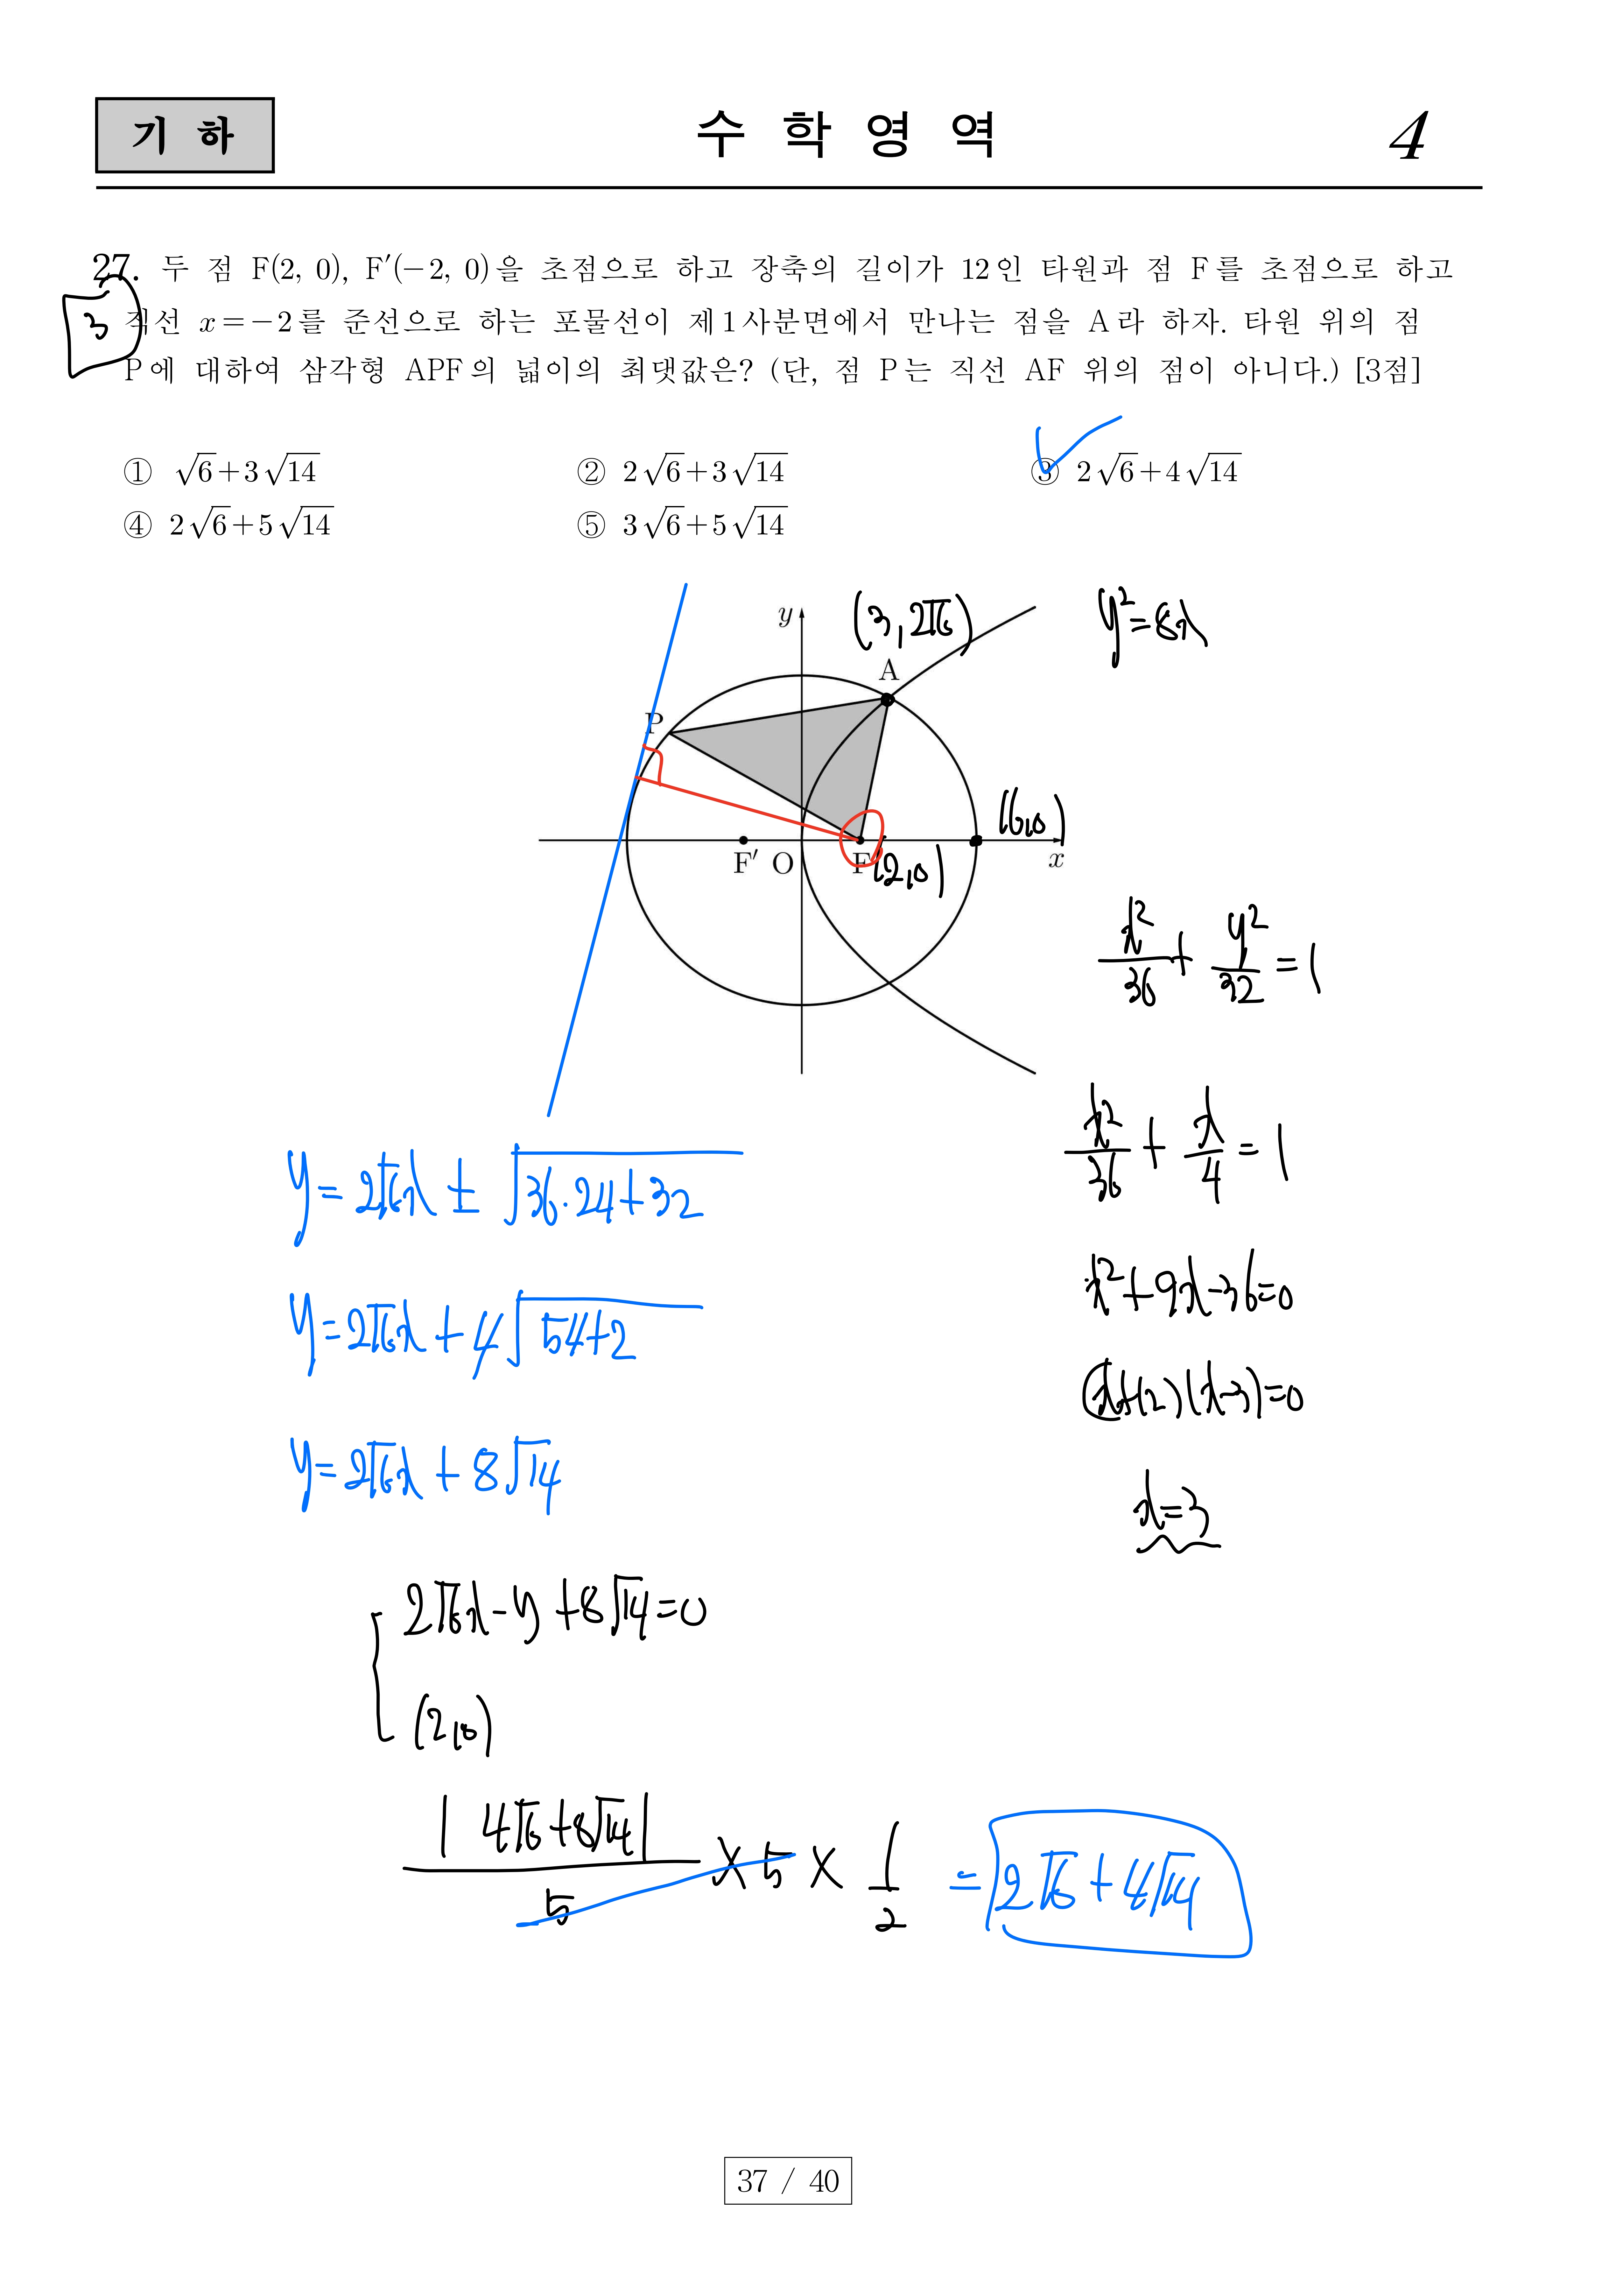 기 하
수 학 영 역
4
27. 두 점 F(2, 0), F′(−2, 0)을 초점으로 하고 장축의 길이가 12인 타원과 점 F를 초점으로 하고
3
직선 x=−2를 준선으로 하는 포물선이 제1사분면에서 만나는 점을 A라 하자. 타원 위의 점
P에 대하여 삼각형 APF의 넓이의 최댓값은? (단, 점 P는 직선 AF 위의 점이 아니다.) [3점]
① √6+3√14
② 2√6+3√14
③ 2√6+4√14
④ 2√6+5√14
⑤ 3√6+5√14
y
(3, 2√6)
y²=8x
A
P
(6,0)
F′
O
F
(2,0)
x
x²/36 + y²/32 = 1
x²/36 + x/4 = 1
y = 2√6x ± √(36·24+32)
x²+9x−36=0
y=2√6x + 4√(54+2)
(x+12)(x−3)=0
y=2√6x + 8√14
x=3
2√6x−y+8√14=0
(2,0)
|4√6+8√14|/5 × 5 × 1/2 = 2√6+4√14
37 / 40